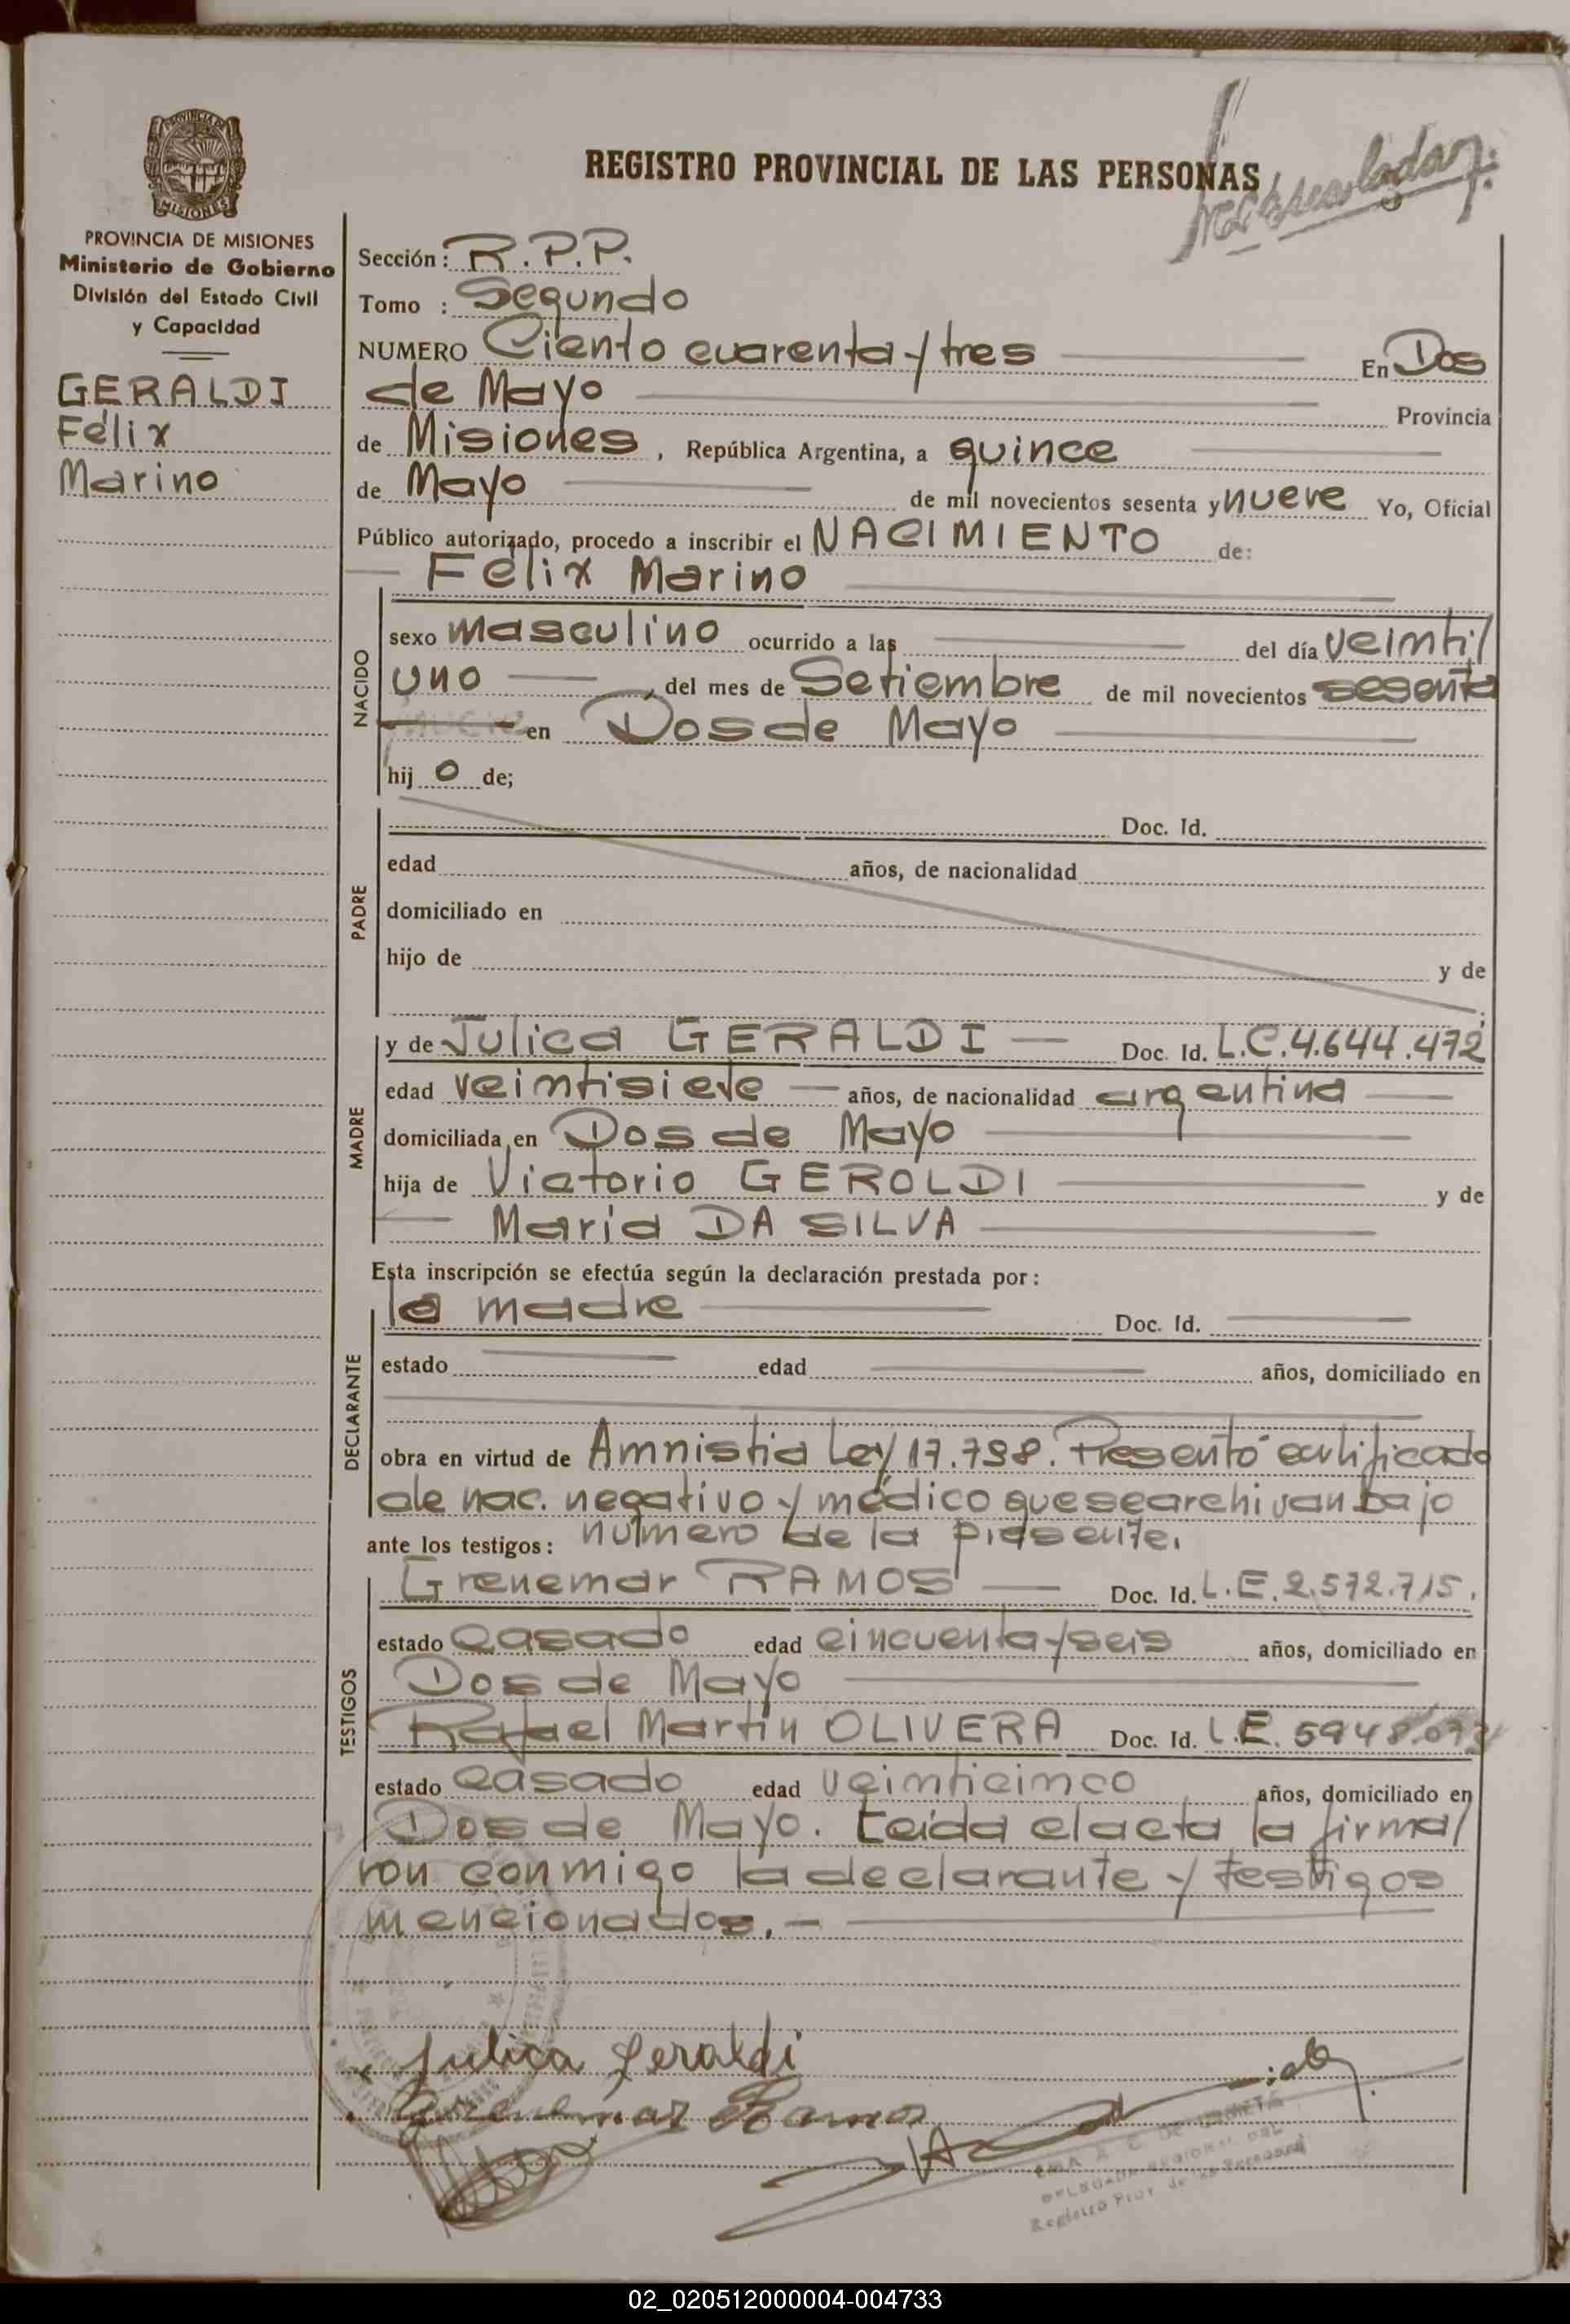 REGISTRO PROVINCIAL DE LAS PERSONAS
PROVINCIA DE MISIONES
Ministerio de Gobierno
División del Estado Civil
y Capacidad
GERALDI
Félix
Marino
Sección: R.P.P.
Tomo : Segundo
NUMERO Ciento cuarenta y tres En Dos
de Mayo Provincia
de Misiones, República Argentina, a quince
de Mayo de mil novecientos sesenta y nueve Yo, Oficial
Público autorizado, procedo a inscribir el NACIMIENTO de:
Félix Marino
NACIDO
sexo masculino ocurrido a las del día veinti/
uno del mes de Setiembre de mil novecientos sesenta
en Dos de Mayo
hij o de;
PADRE
Doc. Id.
edad años, de nacionalidad
domiciliado en
hijo de y de
MADRE
y de Julica GERALDI Doc. Id. L.C.4.644.472
edad veintisiete años, de nacionalidad argentina
domiciliada en Dos de Mayo
hija de Victorio GEROLDI y de
Maria DA SILVA
Esta inscripción se efectúa según la declaración prestada por:
DECLARANTE
la madre Doc. Id.
estado edad años, domiciliado en
obra en virtud de Amnistia Ley 17.798. Presentó certificado
de nac. negativo y médico que se archivan bajo
número de la presente.
ante los testigos:
TESTIGOS
Grenemar RAMOS Doc. Id. L.E.2.572.715.
estado casado edad cincuenta y seis años, domiciliado en
Dos de Mayo
Rafael Martín OLIVERA Doc. Id. L.E. 5948
estado casado edad veinticinco años, domiciliado en
Dos de Mayo. Leída el acta la firma/
ron conmigo la declarante y testigos
mencionados.-
Julica Geraldi
Grenemar Ramos
Registro Prov. de las Personas
02_020512000004-004733